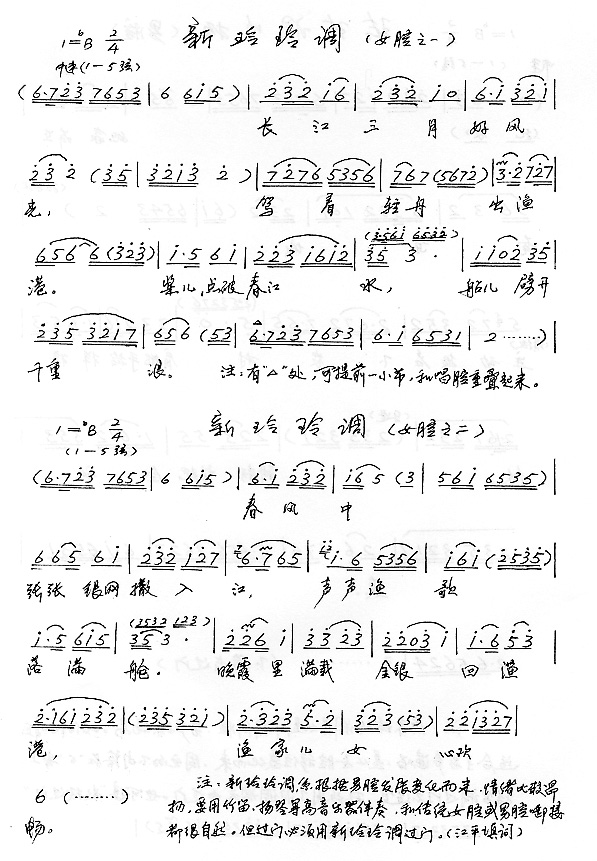 1=♭B 2/4 新玲玲调 (女腔之一)
中速(1—5弦)
(6·7 2 3 7 6 5 3 | 6 6 i 5) | 2 3 2 i 6 | 2 3 2 i 0 | 6·i 3 2 i |
长江三月好风
2 3 2 (3 5 | 3 2 i 3 2) | 7 2 7 6 5 3 5 6 | 7 6 7 (5 6 7 2) | 3·2 7 2 7 |
光, 驾着轻舟出渔
6 5 6 6 (3 2 3) | i·5 6 i | 2 2 3 i 6 i 2 | 3 5 3· | i i 0 2 3 5 |
(3 5 6 i 6 5 3 2)
港。 桨儿点破春江水, 船儿劈开
2 3 5 3 2 i 7 | 6 5 6 (5 3 | 6·7 2 3 7 6 5 3 | 6·i 6 5 3 1 | 2 ……) |
千重浪。 注:有"△"处,可提前一小节,和唱腔重叠起来。
1=♭B 2/4 新玲玲调 (女腔之二)
(1—5弦)
(6·7 2 3 7 6 5 3 | 6 6 i 5) | 6·i 2 3 2 | i 6 5 (3 | 5 6 i 6 5 3 5) |
春风中
6 6 5 6 i | 2 3 2 i 2 7 | 6·7 6 5 | i·6 5 3 5 6 | i 6 i (2 5 3 5) |
张张银网撒入江, 声声渔歌
i·5 6 i 5 | 3 5 3· | 2 2 6 i | 3 3 2 3 | 2 2 0 3 i | i·6 5 3 |
(2 5 3 2 1 2 3)
落满舱。 晚霞里满载金银回渔
2·i 6 i 2 3 2 | (2 3 5 3 2 i) | 2·3 2 3 5·2 | 3 2 3 (5 3) | 2 2 i 3 2 7 |
港, 渔家儿女心欢
6 (……)
畅。
注:新玲玲调系根据男腔发展变化而来,情绪比较昂
扬,要用竹笛、扬琴等高音乐器伴奏,和传统女腔或男腔衔接
都很自然。但过门必须用新玲玲调过门。(江平填词)